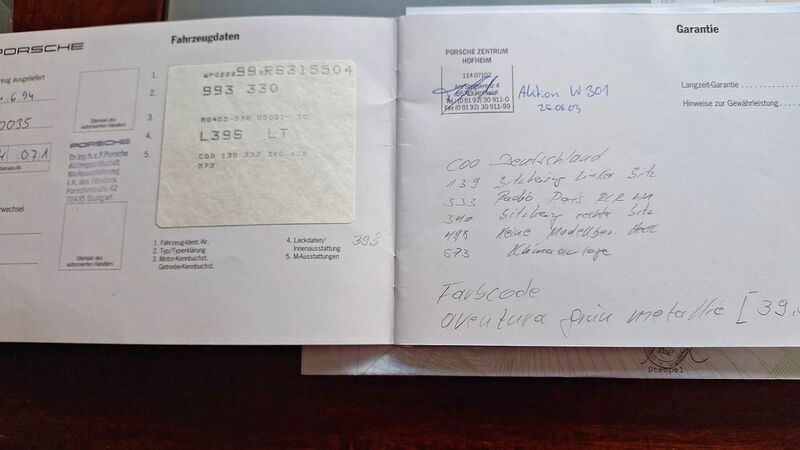 PORSCHE
Fahrzeugdaten
ausgeliefert
6.94
0035
0.7.1
Stempel des
autorisierten Händlers
PORSCHE
Dr. Ing. h.c. F. Porsche
Aktiengesellschaft
Werksauslieferung
Porschestraße 42
70435 Stuttgart
Stempel des
autorisierten Händlers
1.
2.
3.
4.
5.
993 330
L39S LT
C00 139 333 340 498
573
1. Fahrzeug-Ident.-Nr.
2. Typ/Typerklärung
3. Motor-Kennbuchst.
Getriebe-Kennbuchst.
4. Lackdaten/
Innenausstattung
5. M-Ausstattungen
Garantie
PORSCHE ZENTRUM
HOFHEIM
114 07102
65719 Hofheim
Tel. (0 61 92) 30 911-0
Fax (0 61 92) 30 911-99
Aktion W301
Langzeit-Garantie
Hinweise zur Gewährleistung
C00 Deutschland
139 Sitzheizung linker Sitz
333 Radio Paris RCR
340 Sitzheizg rechter Sitz
498 Keine Modellbez.
573 Klimaanlage
Farbcode
aventura grün metallic [39.
Stempel